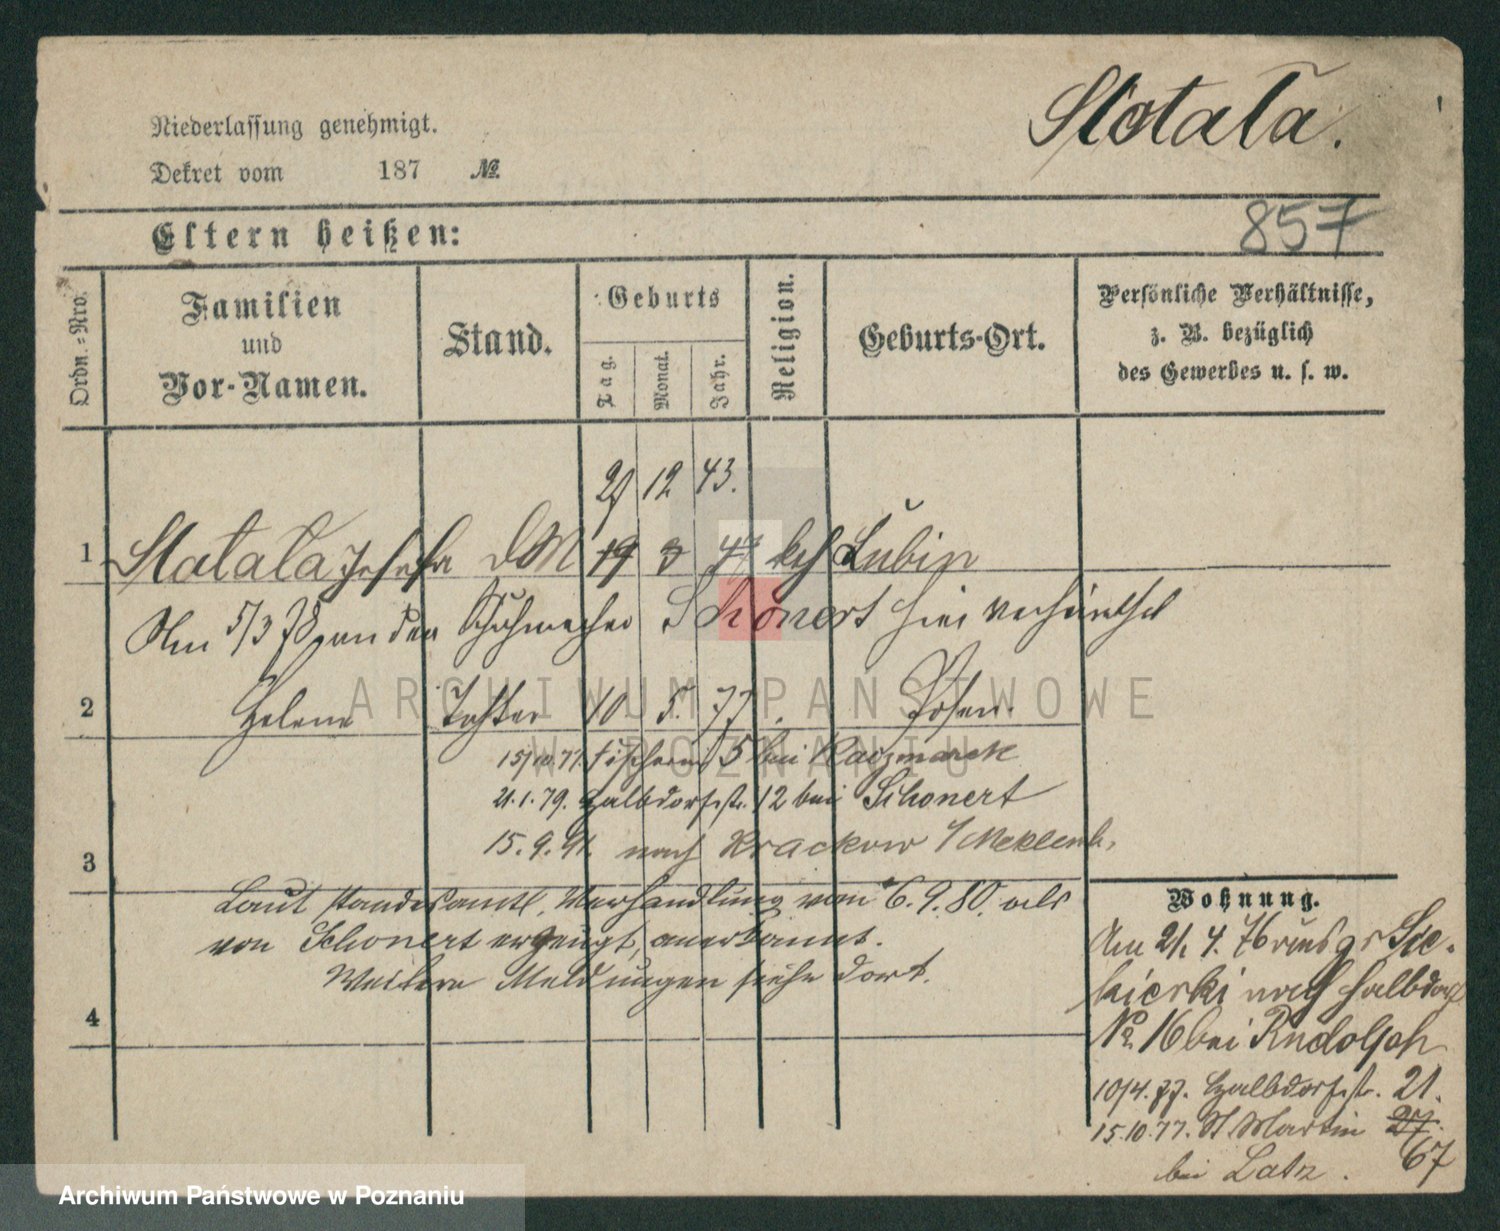 Niederlassung genehmigt.
Dekret vom 187 №
Slotala.
Eltern heißen:
857
Ordn.-Nro.
Familien
und
Vor-Namen.
Stand.
Geburts
Tag.
Monat.
Jahr.
Religion.
Geburts-Ort.
Persönliche Verhältnisse,
z. B. bezüglich
des Gewerbes u. s. w.
12 43.
1 Slotala Josefa DM 19 3 47 kth Lubin
Am 5/3 78 an den Schuhmacher Schonert hier verheirathet
2 Helene Tochter 10 5. 77 Posen.
15/10.77. Fischerei 5 bei Kaczmarek
21.1.79. Halbdorfstr. 12 bei Schonert
3 15.9.91. nach Krackow i/Meklenb.
Laut standesamtl. Verhandlung vom 6.9.80. als
von Schonert erzeugt, anerkannt.
Weitere Meldungen siehe dort.
4
Wohnung.
Am 21. 4. 76
nach Halbdorf
№ 16 bei Rudolph
10/4. 77. Halbdorfstr. 21.
15.10.77. St Martin 27
67
bei Latz.
ARCHIWUM PAŃSTWOWE
W POZNANIU
Archiwum Państwowe w Poznaniu